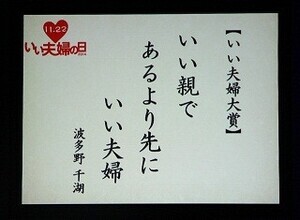 11.22
いい夫婦の日
【いい夫婦大賞】
いい親で
あるより先に
いい夫婦
波多野 千湖